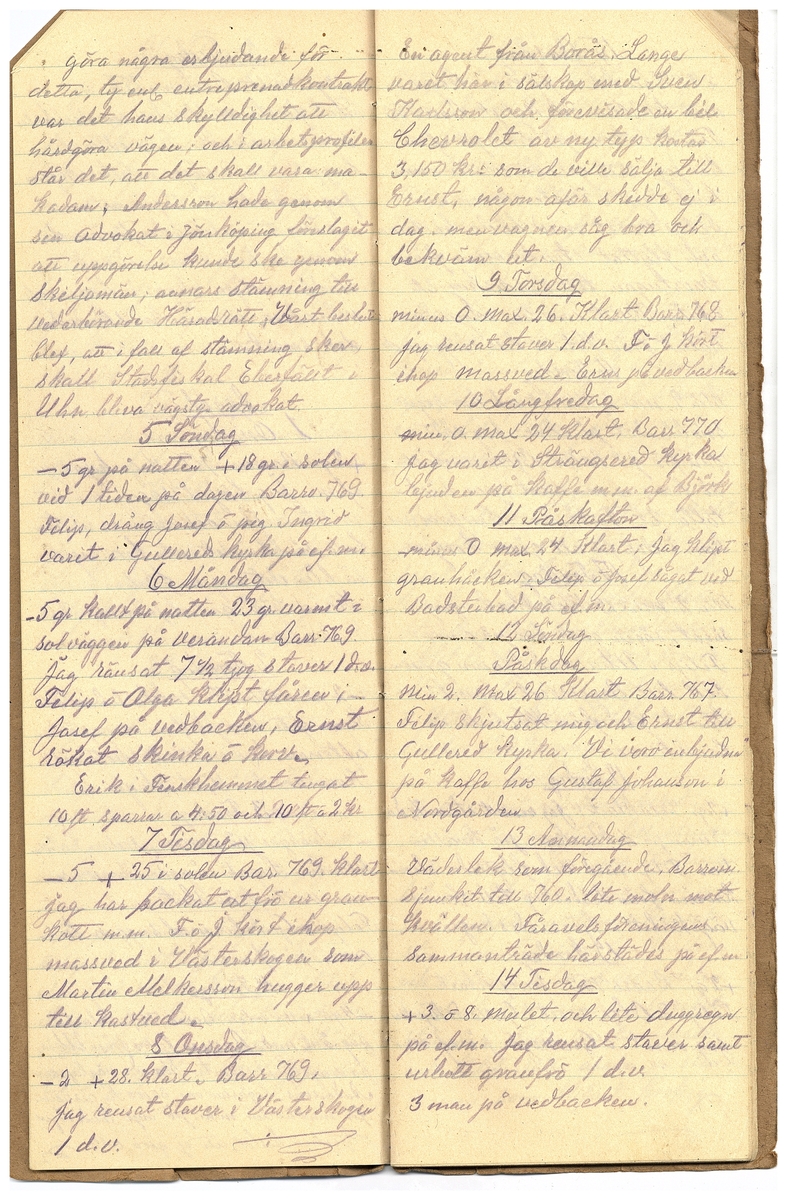 göra några erbjudande för
detta, ty enl. entreprenadkontrakt
var det hans skylldighet att
hårdgöra vägen; och i arbetsprofilen
står det, att det skall vara ma-
kadam; Andersson hade genom
sin advokat i Jönköping föreslagit
att uppgörelse kunde ske genom
skiljemän; annars stämning till
vederbörande Häradsrätt, Vårt beslut
blef, att i fall af stämning sker,
skall Stadsfiskal Eberfält i
Uhn bliva vägsty. advokat.
5 Söndag
- 5 gr på natten + 18 gr. i solen
vid 1 tiden på dagen Barro. 769
Filip, dräng Josef o pig Ingrid
varit i Gullered kyrka på ef.m.
6 Måndag
- 5 gr kallt på natten 23 gr varmt i
solväggen på verandan Barr. 769.
Jag ränsat 7 1/2 tjog staver 1 d.v.
Filip o Olga klipt fåren; -
Josef på vedbacken, Ernst
rökat skinka o korv.
Erik i Fänskhemmet tingat
10 st. sparrar a 4:50 och 10 st a 2 kr
7 Tisdag
- 5 + 25 i solen Bar. 769. klart
jag har packat ut frö ur gran-
kott m.m. F. o J. kört ihop
massved i Västerskogen som
Martin Melkersson hugger upp
till kastved.
8 Onsdag
- 2 + 28. klart. Barr 769,
jag rensat staver i Västerskogen
1 d.v.
En agent från Borås, Lange
varet här i sälskap med Sven
och förevisade en bil
Chevrolet av ny typ kostar
3,150 kr: som de ville sälja till
Ernst, någon afär skedde ej i
dag. men vagnen såg bra och
bekväm ut.
9 Torsdag
minus 0. Max. 26. Klart Barr. 768
jag rensat staver 1. d.v. F. o J. kört
ihop massved. Erns på vedbacken
10 Långfredag
min. 0. max 24 klart. Barr 770
jag varit i Strängsered kyrka
bjuden på kaffe m.m. af Björk
11 Påskafton
minus 0 max 24 Klart; Jag klipt
granhäcken. Filip o Josef sågat ved
Badstubad på ef.m.
12 Söndag
Påskdag
Min 2. Max 26 Klart Barr. 767.
Filip skjutsat mig och Ernst till
Gullered kyrka. Vi voro inbjudna
på kaffe hos Gustaf Johanson i
Nordgården
13 Annandag
Väderlek som föregående, Barrom
sjunket till 760. lite moln mot
kvällen. Faravelsföreningens
sammanträde härstädes på ef.m.
14 Tisdag
+ 3. o 8. mulet, och lite duggregn
på ef.m. jag rensat staver samt
granfrö 1 d.v.
3 man på vedbacken.